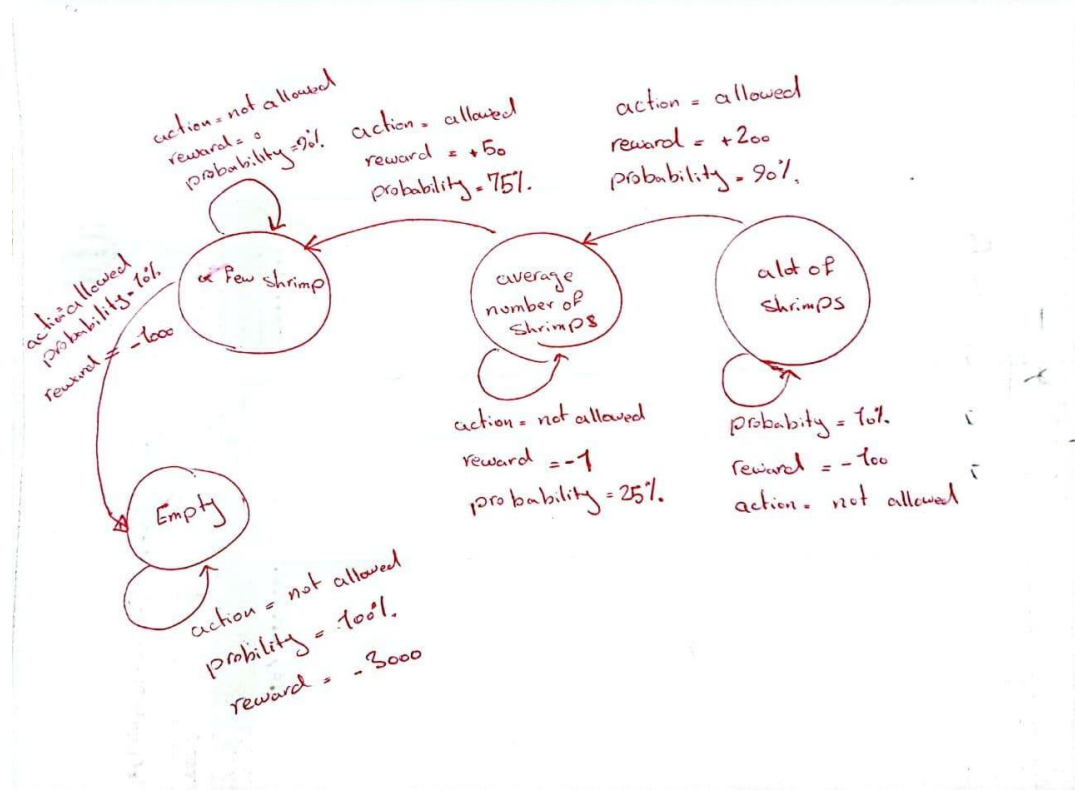 action = not allowed
reward = 0
probability = 90%
action = allowed
reward = +50
probability = 75%.
action = allowed
reward = +200
probability = 90%.
action = allowed
probability = 10%
reward = -1000
a few shrimp
average
number of
shrimps
a lot of
shrimps
action = not allowed
reward = -1
probability = 25%.
probabity = 10%.
reward = -100
action = not allowed
Empty
action = not allowed
probility = 100%.
reward = -3000